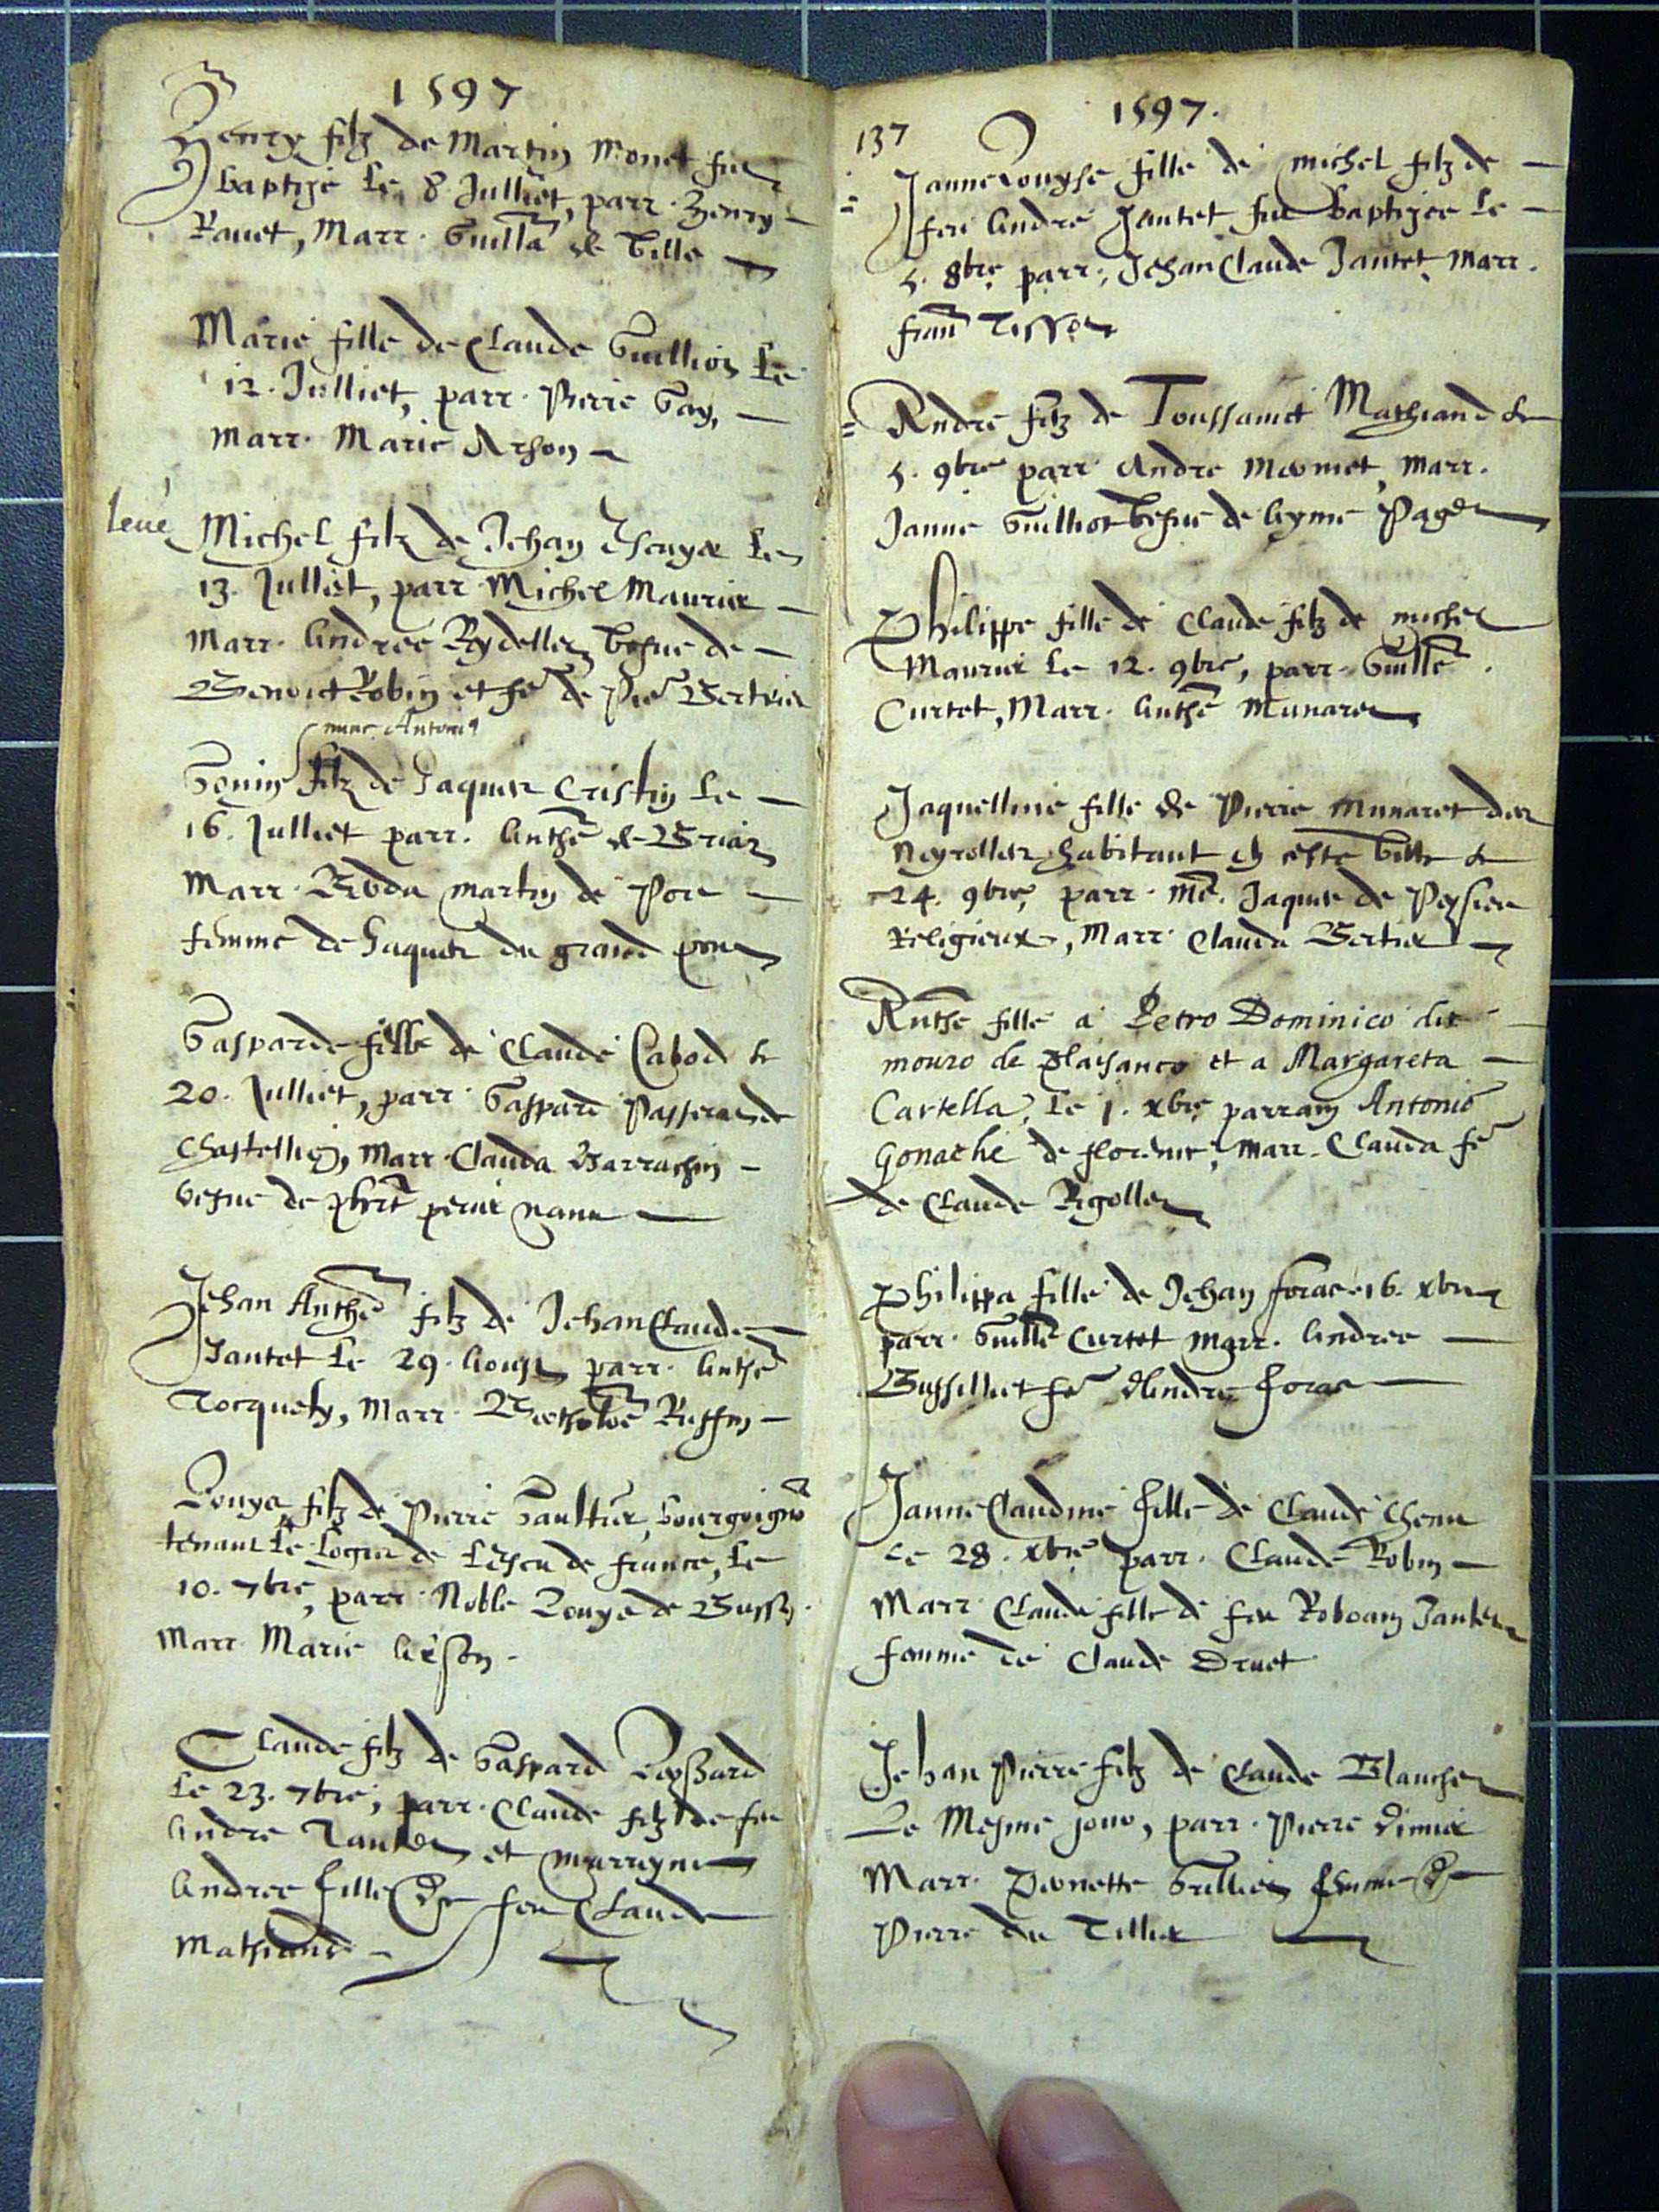 1597
Henry filz de Martin Monet fut
baptizé le 8. Julliet, parr. Henry
Rauet, Marr. Guillã de Ville
Marie fille de Claude Guillion le
12. Julliet, parr. Pierre Gay,
marr. Marie Arson
leué Michel filz de Jehan Escuyer le
13. Julliet, parr. Michel Maurier
marr. Andree Rydellet vefue de
Benoict Robin et fe de Pre Bertrier
nunc Antonius
Gonin filz de Jaques Cristin le
16. Julliet parr. Anthe de Briaz
Marr. Boda martin de
femme de Jaques du grand pont
Gasparde fille de Claude Cabod le
20. Julliet, parr. Gaspard Passerat de
Chastellion, marr. Clauda Barrachin
vefue de nanu
Jehan Anthe filz de Jehan Claude
Jantet le 29. Aoust, parr. Anthe
Tocquet, Marr. Ruffin
Louys filz de Pierre Gaultier, bourguignõ
tenant le logis de lescu de france, le
10. 7bre, parr. Noble Louys de Bussy.
Marr. Marie Arson.
Claude filz de Gaspard
le 23. 7bre, parr. Claude filz de feu
Andre Jantet et marreyne
Andree fille de feu Claude
Mathiand
1597.
137
Janne Louyse fille de michel filz de
feu Andre Jantet fut baptizee le
5. 8bre parr. Jehan Claude Jantet marr.
frañ Tissot
Andre filz de Toussainct Mathiand le
5. 9bre parr. Andre Monnet, marr.
Janne Guilliot vefue de Ayme Paget
Philippe fille de Claude filz de michel
Maurier le 12. 9bre, parr. Guille
Curtet, Marr. Anthe Munaret
Jaquelline fille de Pierre Munaret des
Neyrolles habitant en ceste ville le
24. 9bre, parr. me. Jaques de
religieux, Marr. Clauda Bertier
Ruthe fille a Petro Dominico dit
mouro de plaisance et a Margareta
Cartella, le 1. xbre parrain Antonio
Gonache de florence, marr. Clauda fe
de Claude Rigollet
Philippa fille de Jehan foras 16. xbre
parr. Guille Curtet marr. Andree
Bussilliet fe dAndre foras
Janne Claudine fille de Claude Chenu
Le 28. xbre parr. Claude Robin
Marr. Clauda fille de feu Roboam Jantet
femme de Claude Druet
Jehan Pierre filz de Claude Blanchet
Le Mesme jour, parr. Pierre
Marr. Pernette femme de
Pierre du Tillet